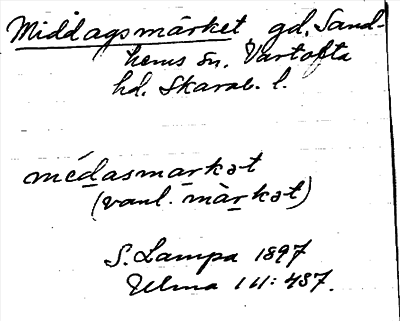 Middagsmärket, gd, Sand-
hems sn, Vartofta
hd. Skarab. l.
médasmarkət
(vanl. màrkət)
S. Lampa 1897
Ulma 111:487.